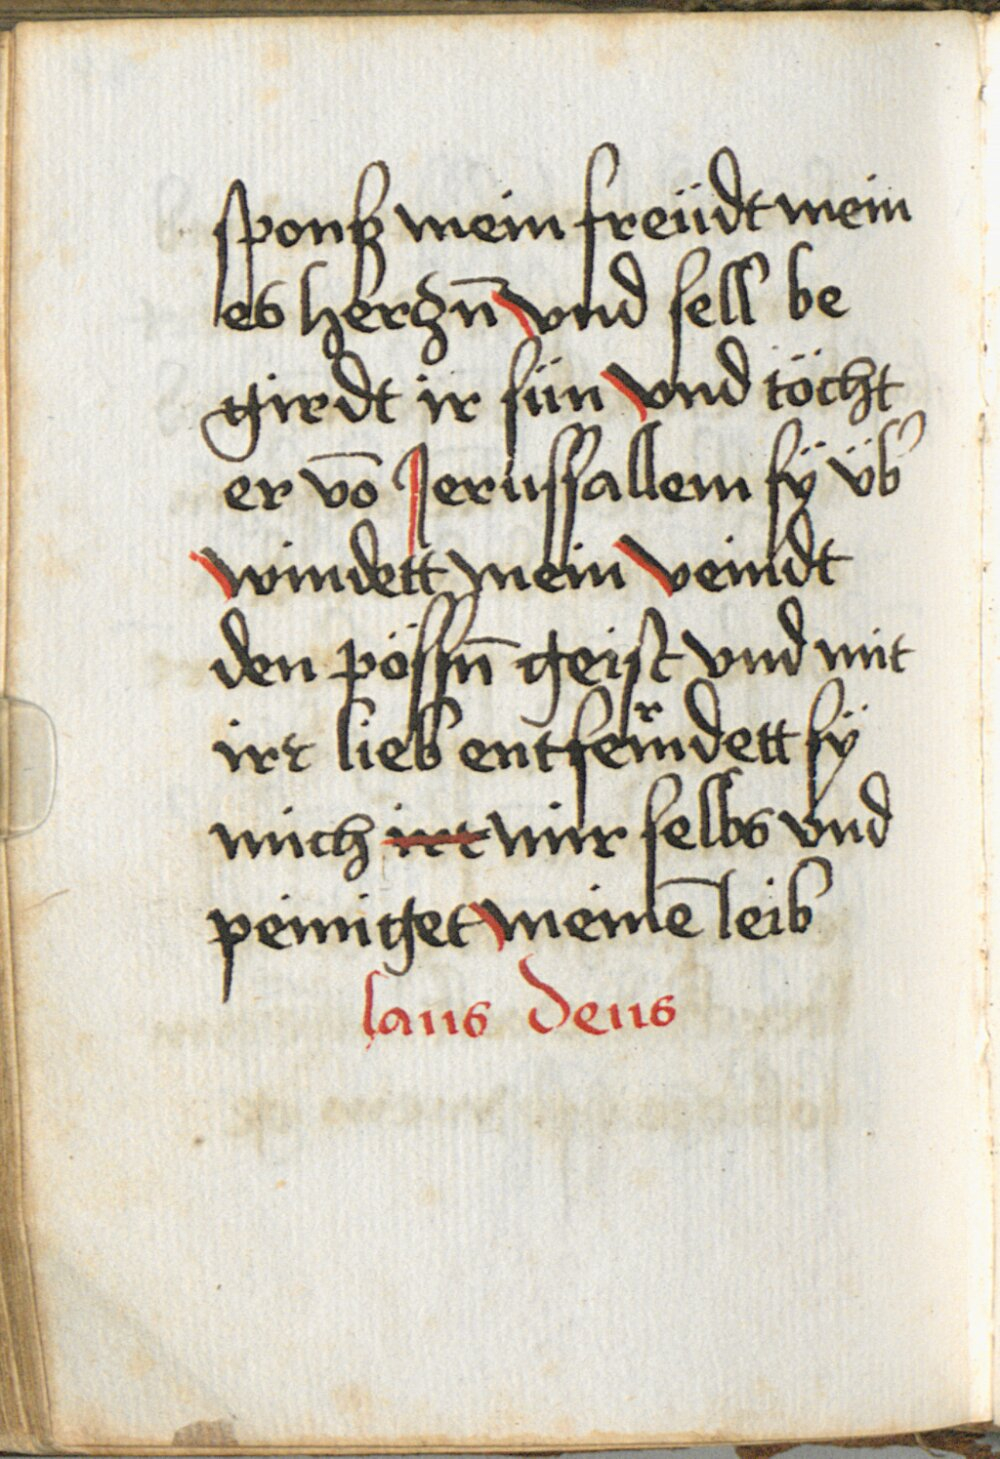 sponß mein freüdt mein
es herczn̄ vnd sell be
girdt ir sün vnd töcht
er vō Jerussallem sÿ üb᾽
windett mein veindt
den pössn̄ geist vnd mit
irr lieb entfermdett sÿ
mich irr mir selbs vnd
peiniget meinē leib
laus deus